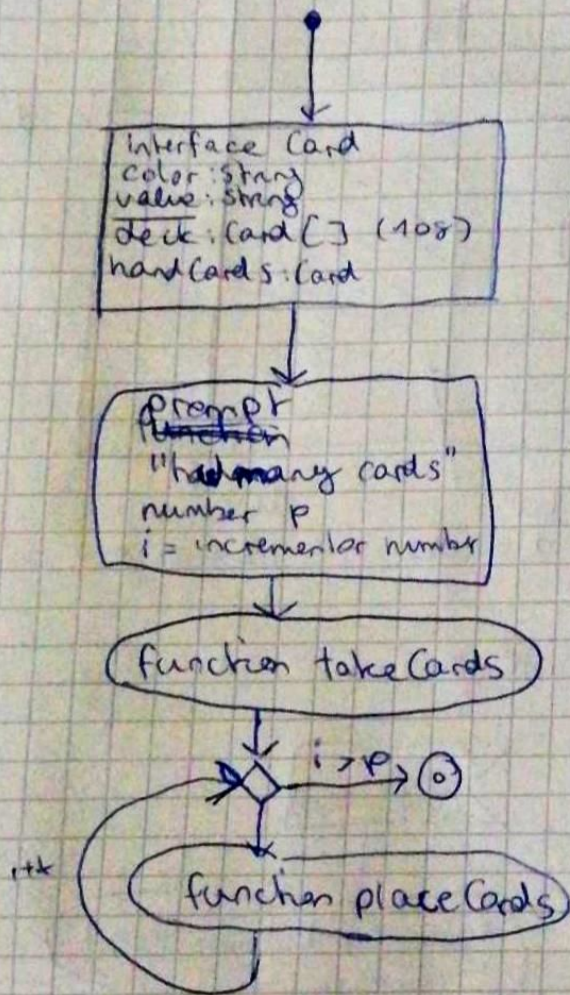 interface Card
color: String
value: String
deck: Card[] (108)
handCards: Card
prompt
function
"how many cards"
number p
i = incrementor number
function takeCards
i > p
i++
function placeCards